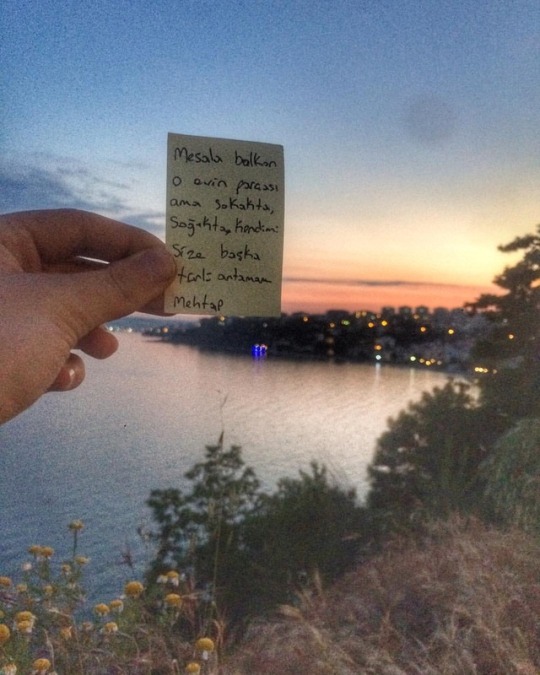 Mesala balkon
o evin parçası
ama sokakta,
Sokakta, kendimi
size başka
türlü anlatamam
Mehtap